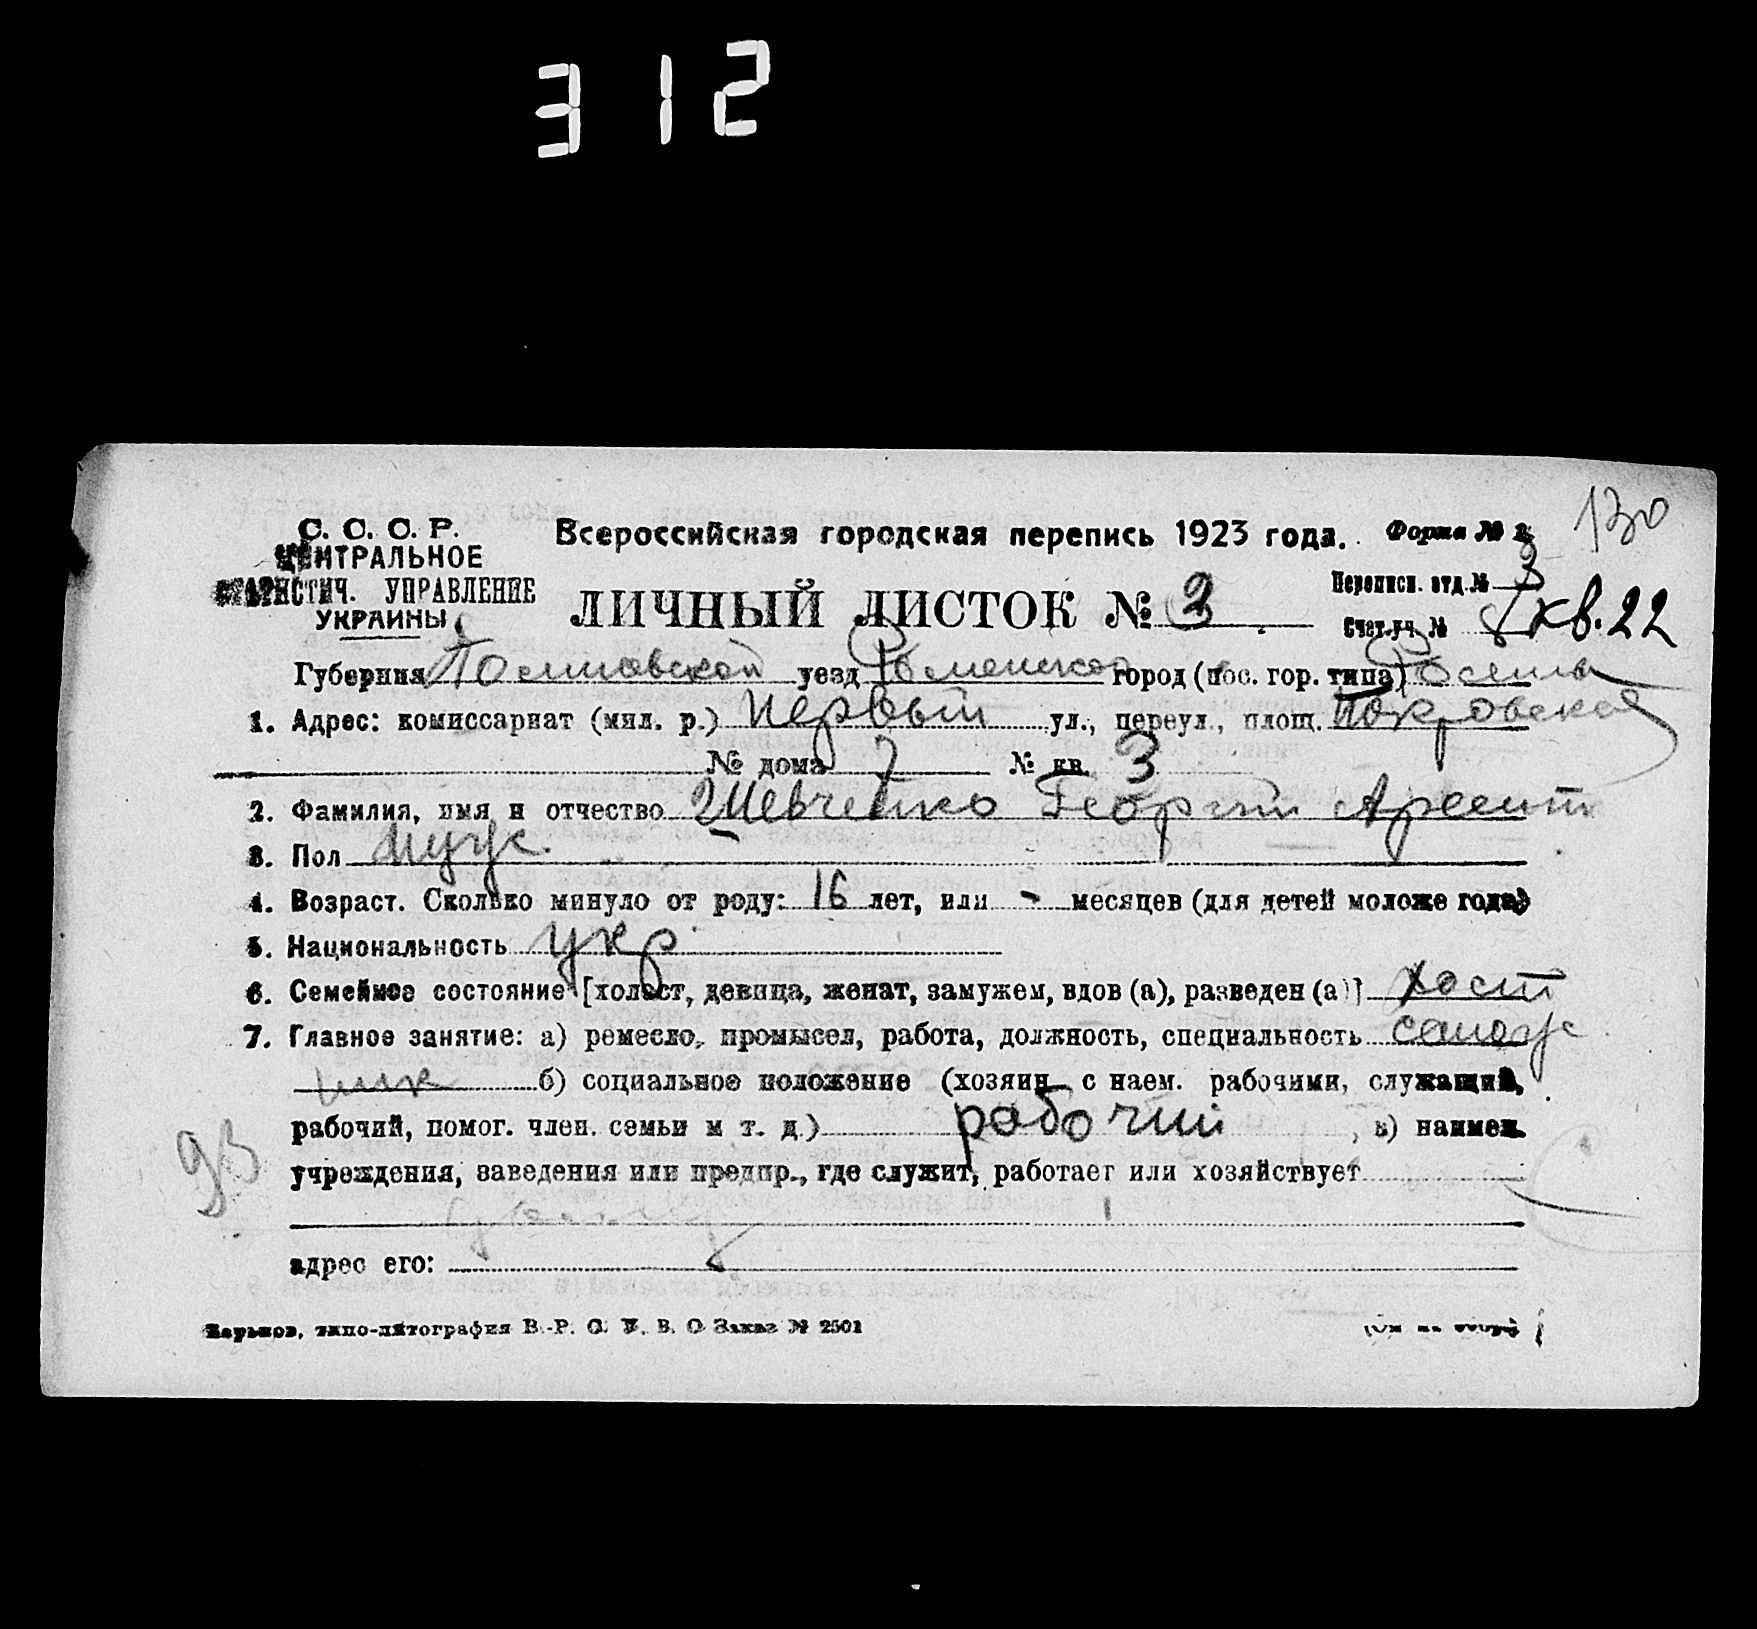 312
130
С. С. С. Р.
ЦЕНТРАЛЬНОЕ
СТАТИСТИЧ. УПРАВЛЕНИЕ
УКРАИНЫ
Всероссийская городская перепись 1923 года. Форма № 2
ЛИЧНЫЙ ЛИСТОК № 3
Переписн. отд. № 3
Счетн. уч. № 8 кв. 22
Губерния Полтавской уезд Роменского город (пос. гор. типа)
1. Адрес: комиссариат (мил. р.) Первый ул., переул., площ. Покровская
№ дома 7 № кв. 3
2. Фамилия, имя и отчество Шевченко Георгий Арсент
3. Пол муж.
4. Возраст. Сколько минуло от роду: 16 лет, или - месяцев (для детей моложе года)
5. Национальность укр
6. Семейное состояние [холост, девица, женат, замужем, вдов (а), разведен (а)] хост
7. Главное занятие: а) ремесло, промысел, работа, должность, специальность сапож
ник б) социальное положение (хозяин с наем. рабочими, служащий,
рабочий, помог. член. семьи и т. д.) рабочий, в) наимен.
учреждения, заведения или предпр., где служит, работает или хозяйствует
93
адрес его:
Харьков, типо-литография В.-Р. С. У. В. О. Заказ № 2501